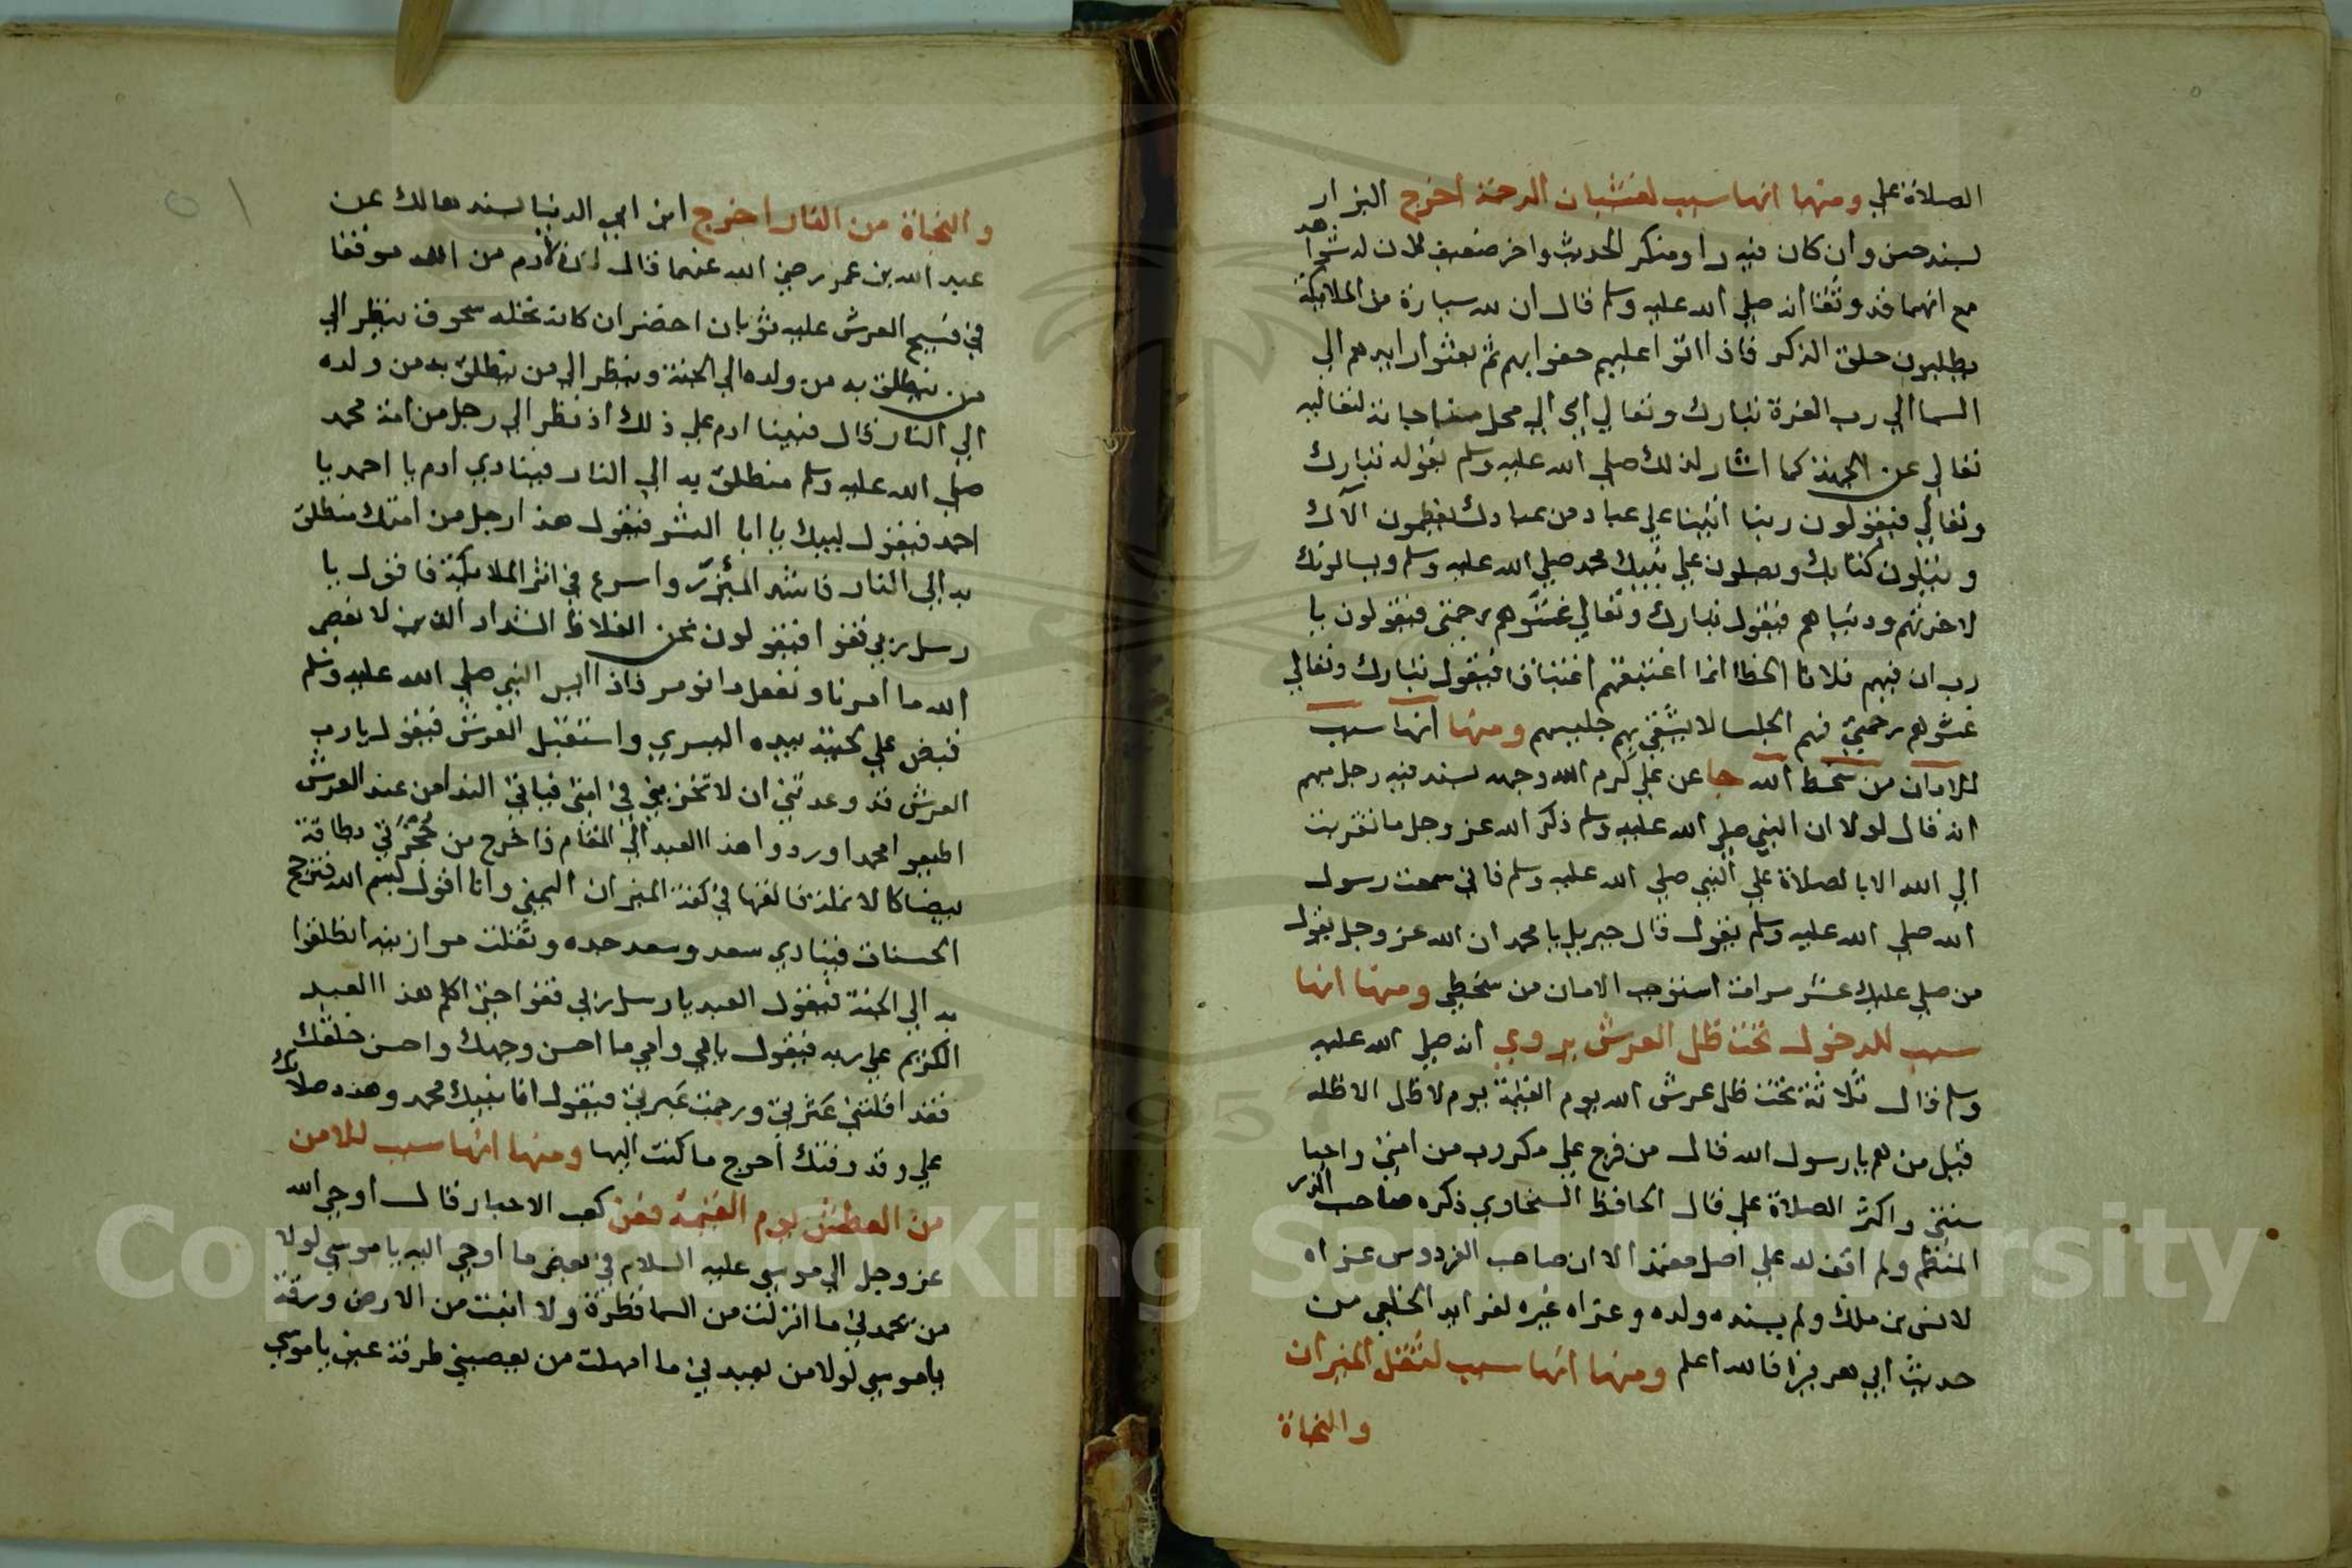 الصلاة علي ومنها انها سبب لغشيان الرحمة اخرج البزار
بسند حسن وان كان فيه راو منكر الحديث واخر ضعيف لان له شواهد
مع انهما قد وثقا انه صلي الله عليه وسلم قال ان لله سيارة من الملائكة
يطلبون حلق الذكر فاذا اتوا عليهم حفوا بهم ثم بعثوا رايدهم الي
السما الي رب العزة تبارك وتعالي اي الي محل مناجاته لتعاليه
تعالي عن الجهة كما اشار لذلك صلي الله عليه وسلم بقوله تبارك
وتعالي فيقولون ربنا اتينا علي عباد من عبادك يعظمون الآك
ويتلون كتابك ويصلون علي نبيك محمد صلي الله عليه وسلم ويسالونك
لاخرتهم ودنياهم فيقول تبارك وتعالي غشوهم رحمتي فيقولون يا
رب ان فيهم فلانا الخطا انما اعتنقهم اعتناقا فيقول تبارك وتعالي
غشوهم رحمتي فهم الجلسا لا يشقي بهم جليسهم ومنها انها سبب
للامان من سخط الله جا عن علي كرم الله وجهه بسند فيه رجل مبهم
انه قال لولا ان النبي صلي الله عليه وسلم ذكر الله عز وجل ما تقربت
الي الله الا بالصلاة علي النبي صلي الله عليه وسلم فاني سمعت رسول
الله صلي الله عليه وسلم يقول قال جبريل يا محمد ان الله عز وجل يقول
من صلي عليك عشر مرات استوجب الامان من سخطي ومنها انها
سبب للدخول تحت ظل العرش يروي انه صلي الله عليه
وسلم قال ثلاثة تحت ظل عرش الله يوم القيمة يوم لا ظل الا ظله
قيل من هم يا رسول الله قال من فرج علي مكروب من امتي واحيا
سنتي واكثر الصلاة علي قال الحافظ السخاوي ذكره صاحب الدر
المنظم ولم اقف له علي اصل معتمد الا ان صاحب الفردوس عزاه
لانس بن ملك ولم يسنده ولده وعزاه غيره لفوايد الخلعي من
حديث ابي هريرة فالله اعلم ومنها انها سبب لثقل الميزان
والنجاة
والنجاة من النار اخرج ابن ابي الدنيا بسند هالك عن
عبد الله بن عمر رضي الله عنهما قال ان لادم من الله موقفا
في فسيح العرش عليه ثوبان اخضران كانه نخله سحوق ينظر الي
من ينطلق به من ولده الي الجنة وينظر الي من ينطلق به من ولده
الي النار قال فبينا ادم علي ذلك اذ نظر الي رجل من امة محمد
صلي الله عليه وسلم منطلق به الي النار فينادي ادم يا احمد يا
احمد فيقول لبيك يا ابا البشر فيقول هذا رجل من امتك منطلق
به الي النار فاشد الميزر واسرع في اثر الملائكة فاقول يا
رسل ربي قفوا فيقولون نحن الغلاظ الشداد الذين لا نعصي
الله ما امرنا ونفعل ما نومر فاذا ايس النبي صلي الله عليه وسلم
قبض علي لحيته بيده اليسري واستقبل العرش فيقول يا رب
العرش قد وعدتني ان لا تخزيني في امتي فياتي الندا من عند العرش
اطيعوا محمدا وردوا هذا العبد الي المقام فاخرج من حجزتي بطاقة
بيضا كالانملة فالقها في كفة الميزان اليمني وانا اقول بسم الله فترجح
الحسنات فينادي سعد وسعد جده وثقلت موازينه انطلقوا
به الي الجنة فيقول العبد يا رسل ربي قفوا حتي اكلم هذا العبد
الكريم علي ربه فيقول بابي وامي ما احسن وجهك واحسن خلقك
فقد اقلتني عثرتي ورحمت عبرتي فيقول انا نبيك محمد وهذه صلاتك
علي وقد وفتك احوج ما كنت اليها ومنها انها سبب للامن
من العطش يوم القيمة فعن كعب الاحبار قال اوحي الله
عز وجل الي موسي عليه السلام في بعض ما اوحي اليه يا موسي لولا
من يحمدني ما انزلت من السما قطرة ولا انبت من الارض ورقة
يا موسي لولا من يعبدني ما امهلت من يعصيني طرفة عين يا موسي
Copyright © King Saud University
1957